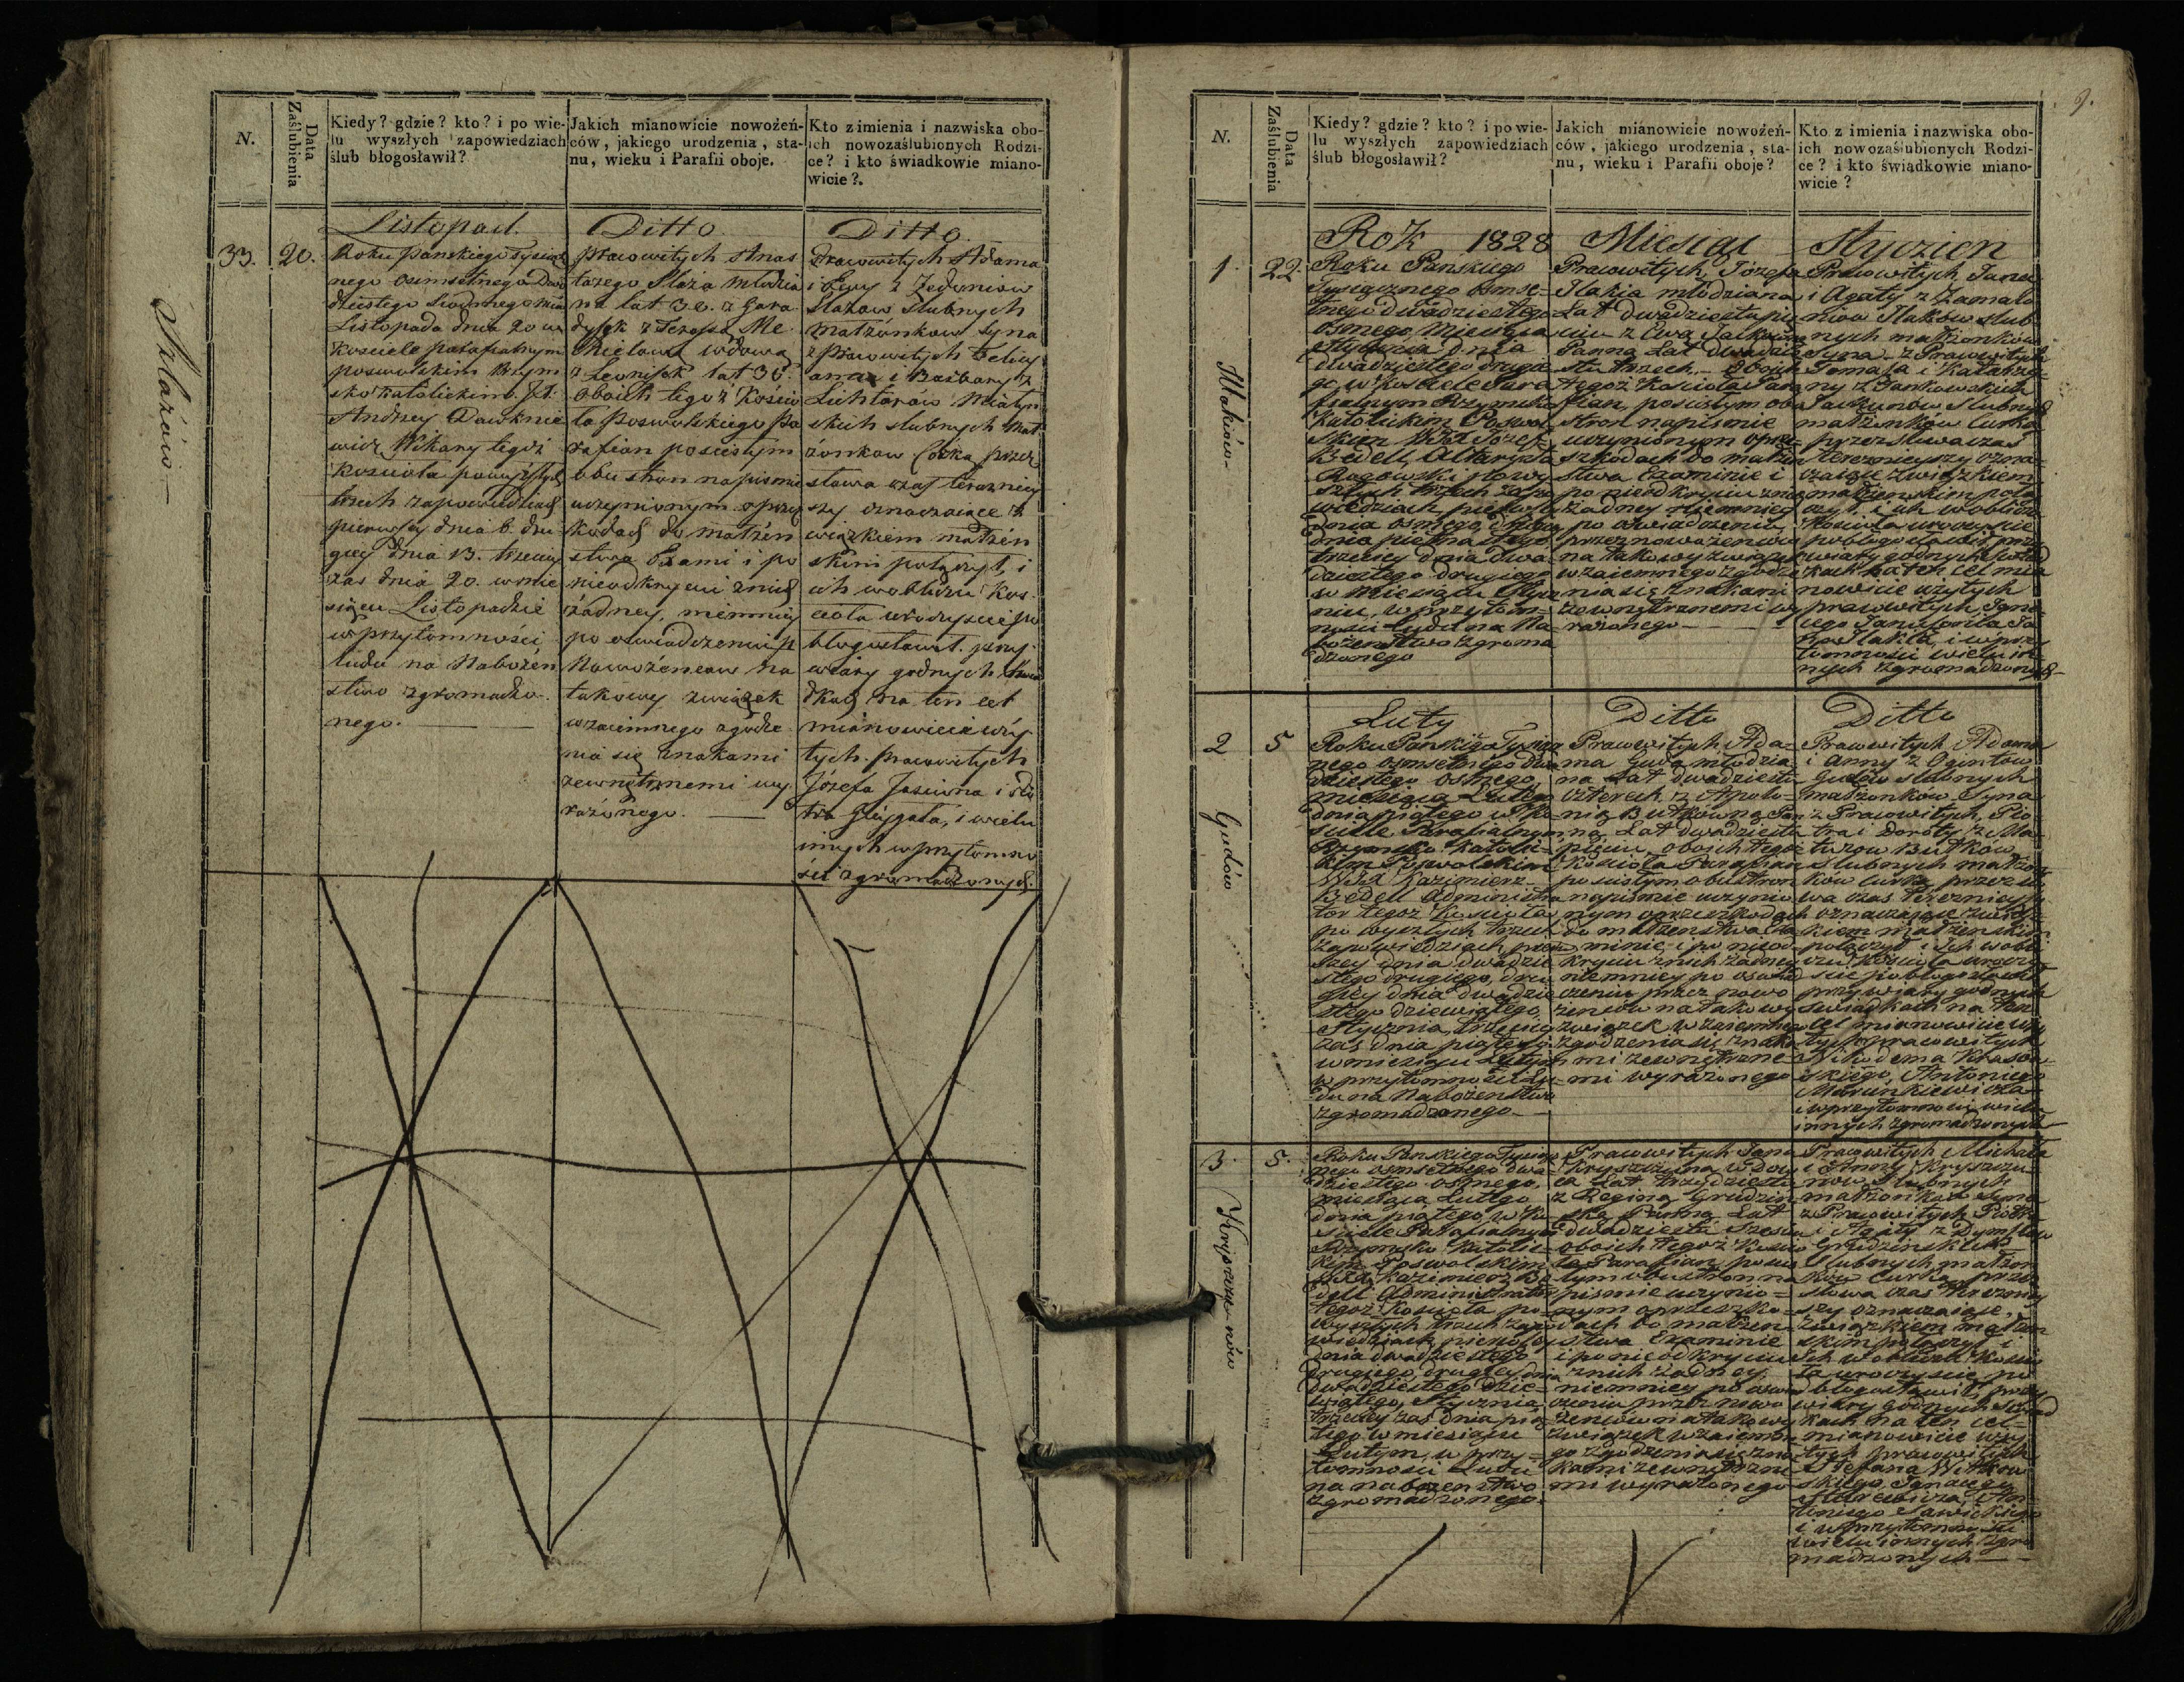 N.
Data Zaślubienia
Kiedy? gdzie? kto? i po wie-
lu wyszłych zapowiedziach
ślub błogosławił?
Jakich mianowicie nowożeń-
ców, jakiego urodzenia, sta-
nu, wieku i Parafii oboje.
Kto z imienia i nazwiska obo-
ich nowozaślubionych Rodzi-
ce? i kto świadkowie miano-
wicie?.
33.
20.
Listopad.
Roku Panskiego Tysiącz
nego osimsetnego Dwa
dziestego siodmego mca
Listopada dnia 20 w
Kosciele parafialnym
poswolskim Rzym
sko katolickim. JX
Andrzey
Wikary tegoż
Koscioła po wyszłych
trzech zapowiedziach
pierwszey dnia 6. dru
giey dnia 13. trzeciey
zas dnia 20. w mie
siącu Listopadzie
w przytomności
ludu na Nabożeń
stwo zgromadzo
nego.
Ditto
prawowitych Anas
tazego Młodzia
na lat 30. z
z
wdową
z lat 36.
oboich tegoż Kościo
ła Poswolskiego Pa
rafian po scisłym
obu stron na pismie
uczynionym o przesz
kodach do małżeń
stwa Exami i po
nieodkryciu żadney
po oswiadczeniu
Nowożencow na
takowy związek
wzaiemnego zgodze
nia się znakami
zewnętrznemi wy
rażonego.
Ditto
Prawowitych Adama
i Ewy z
slubnych
małżonkow Syna
z Prawowitych
i Barbary z
slubnych mał
żonkow Corkę przez
słowa czas teraznie
szy oznaczaiące
związkiem małżeń
skim połączył, i
ich w obliczu Kos
cioła uroczyscie po
błogosławił przy
wiary godnych swia
dkach na ten cel
mianowicie wży
tych prawowitych
Józefa i
i wielu
innych w przytomno
ści zgromadzonych.
9.
N.
Data Zaślubienia
Kiedy? gdzie? kto? i po wie-
lu wyszłych zapowiedziach
ślub błogosławił?
Jakich mianowicie nowożeń-
ców, jakiego urodzenia, sta-
nu, wieku i Parafii oboje?
Kto z imienia i nazwiska obo-
ich nowozaślubionych Rodzi-
ce? i kto świadkowie miano-
wicie?
Rok 1828 Miesiąc Styczien
1
22
Roku Panskiego
Tysiącznego Osmse-
tnego dwadziestego
osmego, Miesiąca
Stycznia dnia
dwadziestego drugie
go, w Kosciele Para
fialnym Rzymsko
Katolickim Poswol
skim WJX Józef
Bedell, Altarysta
po wy
szłych trzech zapo
wiedziach pierwszey
dnia osmego, drugiey
dnia pietnastego
trzeciey dnia dwa
dziestego drugiego
w miesiącu Stycz
niu, w przytom-
nosci ludu na Na
bożenstwo zgroma
dzonego
Prawowitych Józefa
młodziana
Lat dwadziestu pię
ciu z Ewą
Panną Lat dwadzie
stu trzech Oboich
tegoż Kościoła Para
fian, po scisłym obu
stron na pismie
uczynionym o prze
szkodach do małżeń
stwa Examinie i
po nieodkryciu z nich
żadney niemniey
po oswiadczeniu
przez nowożencow
na takowy związek
wzaiemnego zgodze
nia się znakami
zewnętrznemi wy
rażonego
Prawowitych Jana
i Agaty z
slub
nych małżonkow
Syna z Prawowitych
Tomasza i Katarzy
ny z Jankowskich
Slubnych
małżonkow Curką
przez słowa czas
teraznieyszy ozna
czaiące związkiem
małżenskim połą
czył, i ich w obliczu
Kosciola uroczyscie
pobłogosławił przy
wiary godnych swiad
kach na ten cel mia
nowicie użytych
prawowitych
i w przy
tomnosci wielu in
nych zgromadzonych
2
5
Gudów
Luty
Roku Panskiego Tysiącz
nego osmsetnego dwa
dziestego osmego,
miesiąca Lutego
dnia piątego w Ko
sciele Parafialnym
Rzymsko Katolic
kim Poswolskim
WJX Kazimierz
Bedell Administra
tor tegoż Kosciola
po wyszłych trzech
zapowiedziach pierw
szey dnia dwadzie
stego drugiego, dru
giey dnia dwadzie
stego dziewiątego
Stycznia, trzeciey
zas dnia piątego
w miesiącu Lutym
w przytomnosci Lu
du na Nabożenstwo
zgromadzonego
Ditto
Prawowitych Ada-
ma Guda młodzia
na Lat dwadziestu
czterech, z Apolo-
nią Butkowną Pan
ną, Lat dwadziestu
pięciu, oboich tegoż
Kosciola Parafian
po scisłym obu stron
na pismie uczynio
nym o przeszkodach
do małżenstwa Exa
minie i po nieod
kryciu z nich żadney
niemniey po oswiad
czeniu przez nowo
żencow na takowy
związek wzaiemnego
zgodzenia się znaka
mi zewnętrzne
mi wyrażonego
Ditto
Prawowitych Adama
i Anny z Ogintow
Gudow slubnych
małżonkow Syna
z Prawowitych, Pio
tra i Doroty z Ma
Butkow
Slubnych małżon
kow Curką przez sło
wa czas terazniey
szy oznaczaiące związ
kiem małżenskim
połączył i Ich w obli
czu Kosciola uroczy
scie pobłogosławił
przy wiary godnych
swiadkach na ten
cel mianowicie uży
tych prawowitych
Nikodema
Antoniego
i w przytomnosci wielu
innych zgromadzonych
3
5.
Roku Panskiego Tysiącz
nego osmsetnego dwa-
dziestego osmego,
miesiąca Lutego
dnia piątego w Ko
sciele Parafialnym
Rzymsko Katolic-
kim Poswolskim
WJX Kazimierz Be
dell Administrator
tegoż Kosciola po-
wyszłych trzech zapo
wiedziach pierwszey
dnia dwadziestego
drugiego, drugiey dnia
dwadziestego dzie-
wiątego, Stycznia
trzeciey zas dnia pią
tego w miesiącu
Lutym, w przy-
tomnosci Ludu
na nabożenstwo
zgromadzonego.
Prawowitych Jana
Kryszczuna wdow
ca Lat trzydziestu
z Reginą Grudzin
ską Panną Lat
dwadziestu szesciu
oboich tegoż Koscio
ła Parafian, po scis
łym obu stron na
pismie uczynio-
nym o przeszko-
dach do małżen-
stwa Examinie
i po nieodkryciu
z nich żadney,
niemniey po oswiad
czeniu przez nowo
żencow na takowy
związek wzaiemne
go zgodzenia się zna
kami zewnętrzne
mi wyrażonego
Prawowitych Michała
i Anny Kryszczu
now Slubnych
małżonkow Syna
z Prawowitych Piotra
i Agaty z
Grudzinskich
Slubnych małżon
kow Curką przez
słowa czas terazniey
szy oznaczaiące,
związkiem małżen
skim połączył i
Ich w obliczu Koscio
ła uroczyscie po
błogosławił przy
wiary godnych swiad
kach na ten cel
mianowicie uży
tych prawowitych
Stefana
Ignacego
An
toniego Sawickiego
i w przytomnosci
wielu innych zgro
madzonych